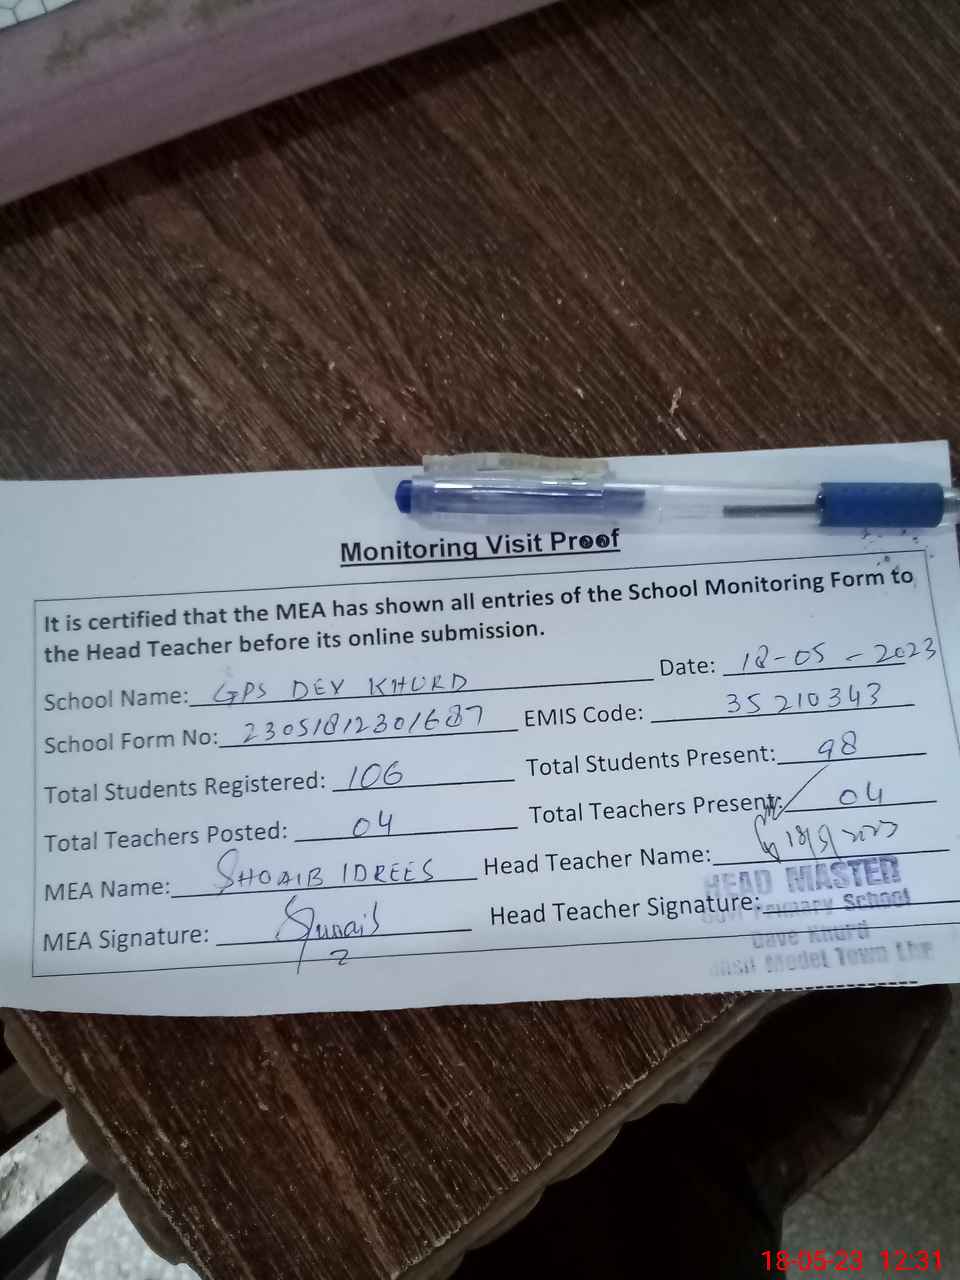 Monitoring Visit Proof
It is certified that the MEA has shown all entries of the School Monitoring Form to
the Head Teacher before its online submission.
School Name: GPS DEV KHURD Date: 18-05-2023
School Form No: 23051812301687 EMIS Code: 35210343
Total Students Registered: 106 Total Students Present: 98
Total Teachers Posted: 04 Total Teachers Present: 04
MEA Name: SHOAIB IDREES Head Teacher Name: 18/5/2023
MEA Signature: Head Teacher Signature:
HEAD MASTER
Govt Primary School
Dave Khurd
Model Town Lhr
18-05-23 12:31